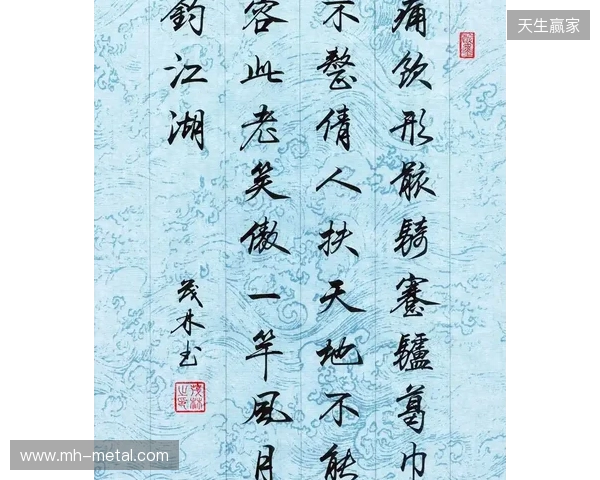 天生赢家
痛飲形骸騎蹇驢葛巾
不整倩人扶天地不能
容此老笑傲一竿風月
釣江湖
茂林书
www.mh-metal.com